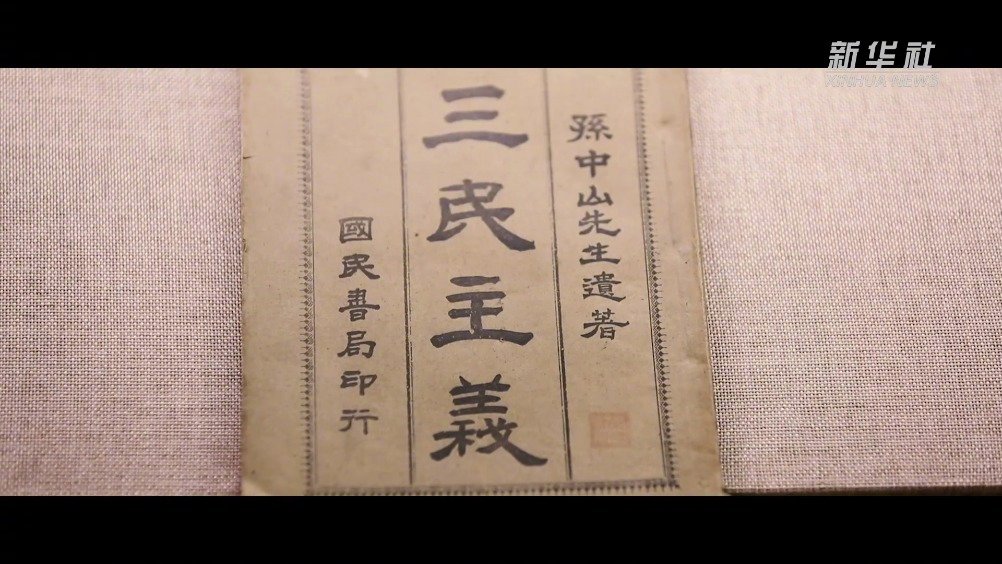 新华社
XINHUA NEWS
孫中山先生遺著
三民主義
國民書局印行